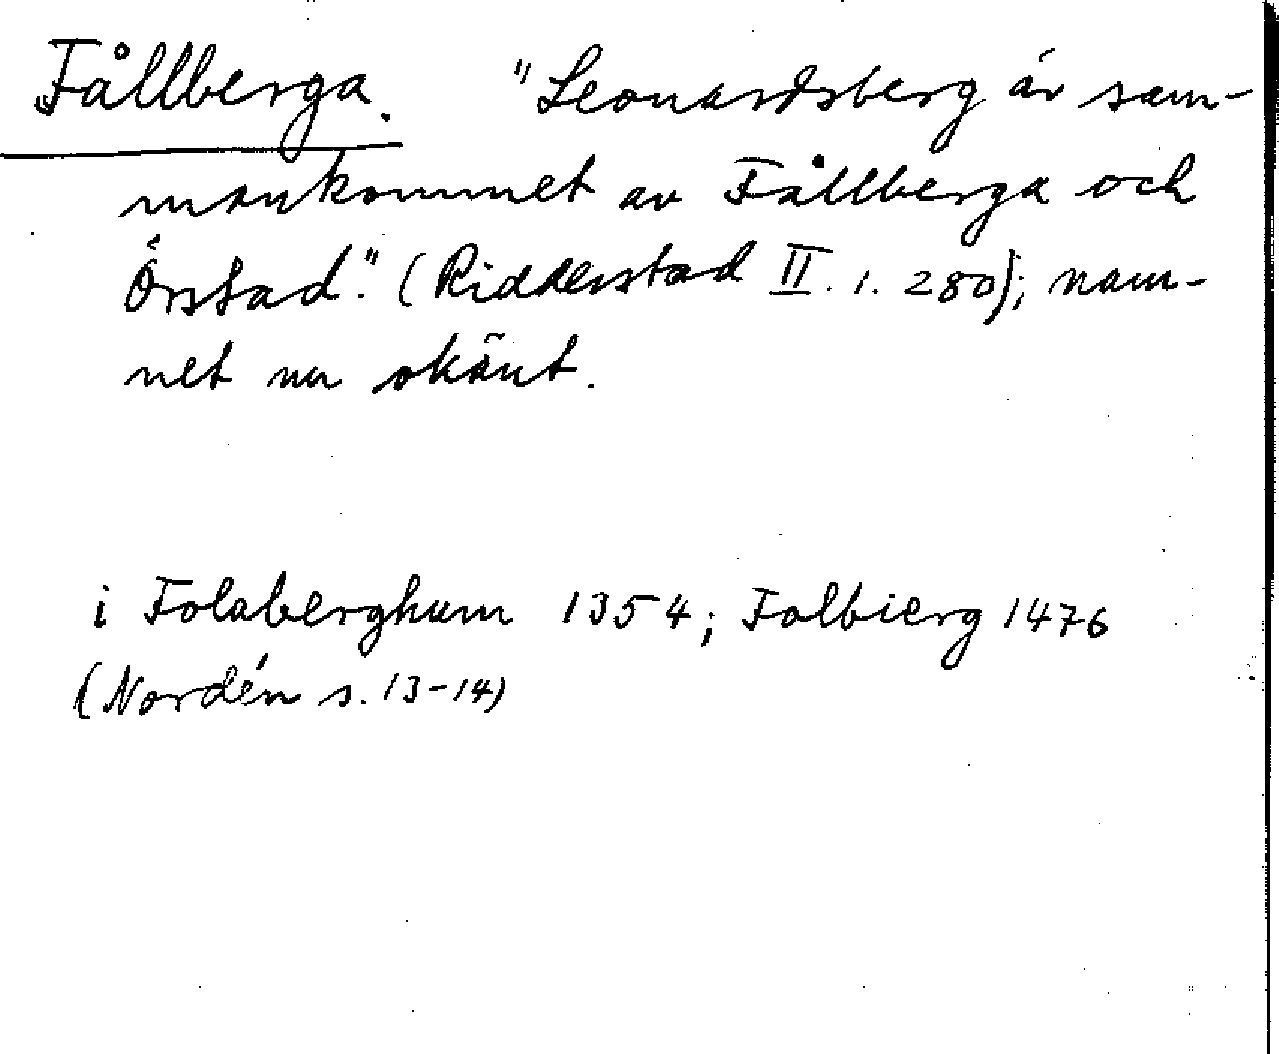 Fållberga. "Leonardsberg är sam-
mankommet av Fållberga och
Örstad." (Ridderstad II. 1. 280); nam-
net nu okänt.
i Folaberghum 1354; Folbierg 1476
(Nordén s. 13-14)